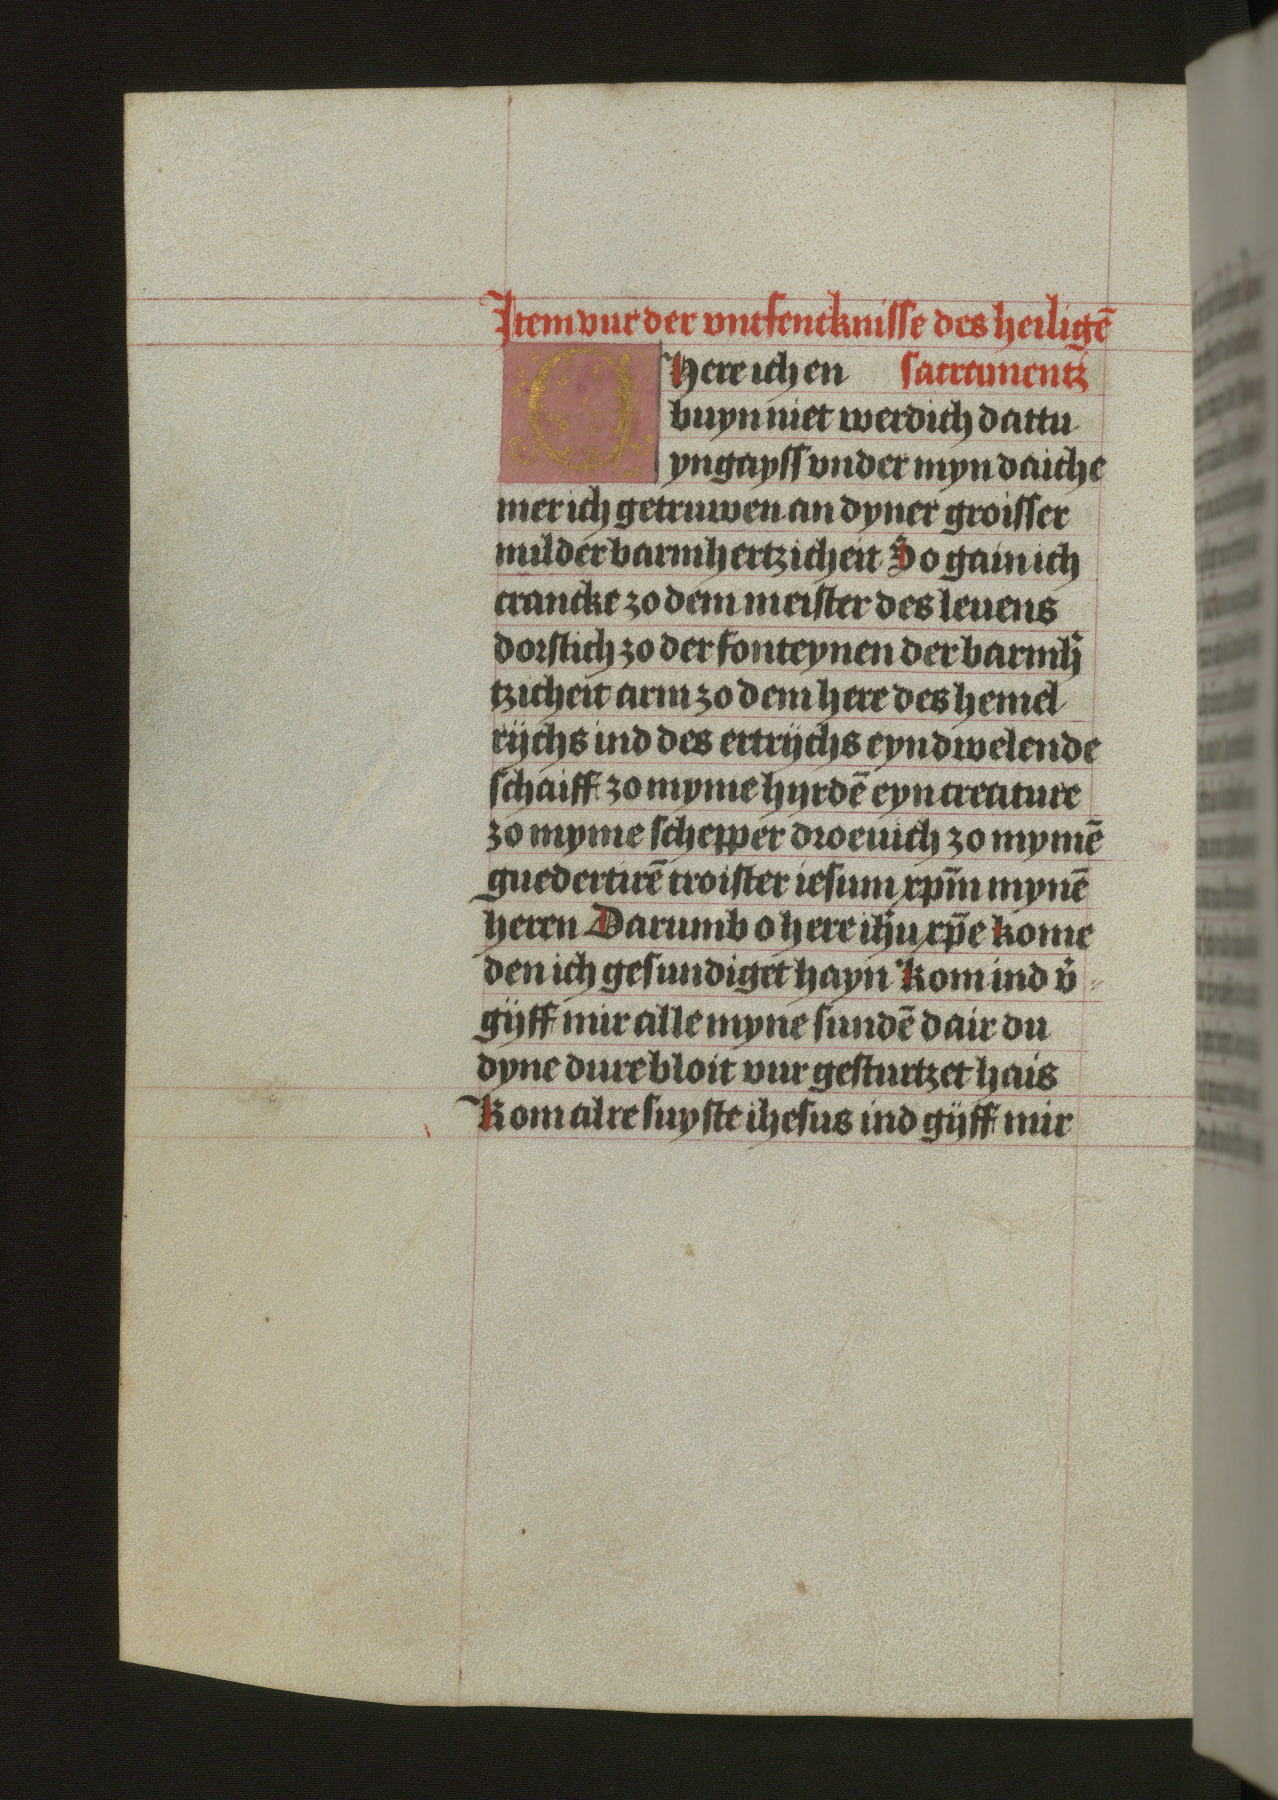 Item vur der vntfencknisse des heiligē
O Here ich en sacramentz
buyn niet werdich dattu
yngayss vnder myn daiche
mer ich getruwen an dyner groisser
milder barmhertzicheit So gain ich
crancke zo dem meister des leuens
dorstich zo der fonteynen der barmh̉
tzicheit arm zo dem here des hemel
rijchs ind des ertrijchs eyn dwelende
schaiff zo myme hyrdē eyn creature
zo myme schepper droeuich zo mymē
guedertirē troister iesum xpm̄ mynē
heren Darumb o here ihū xpē kome
den ich gesundiget hayn Kom ind v̉
gijff mir alle myne sundē dair du
dyne dure bloit vur gesturtzet hais
Kom alre suyste ihesus ind gijff mir